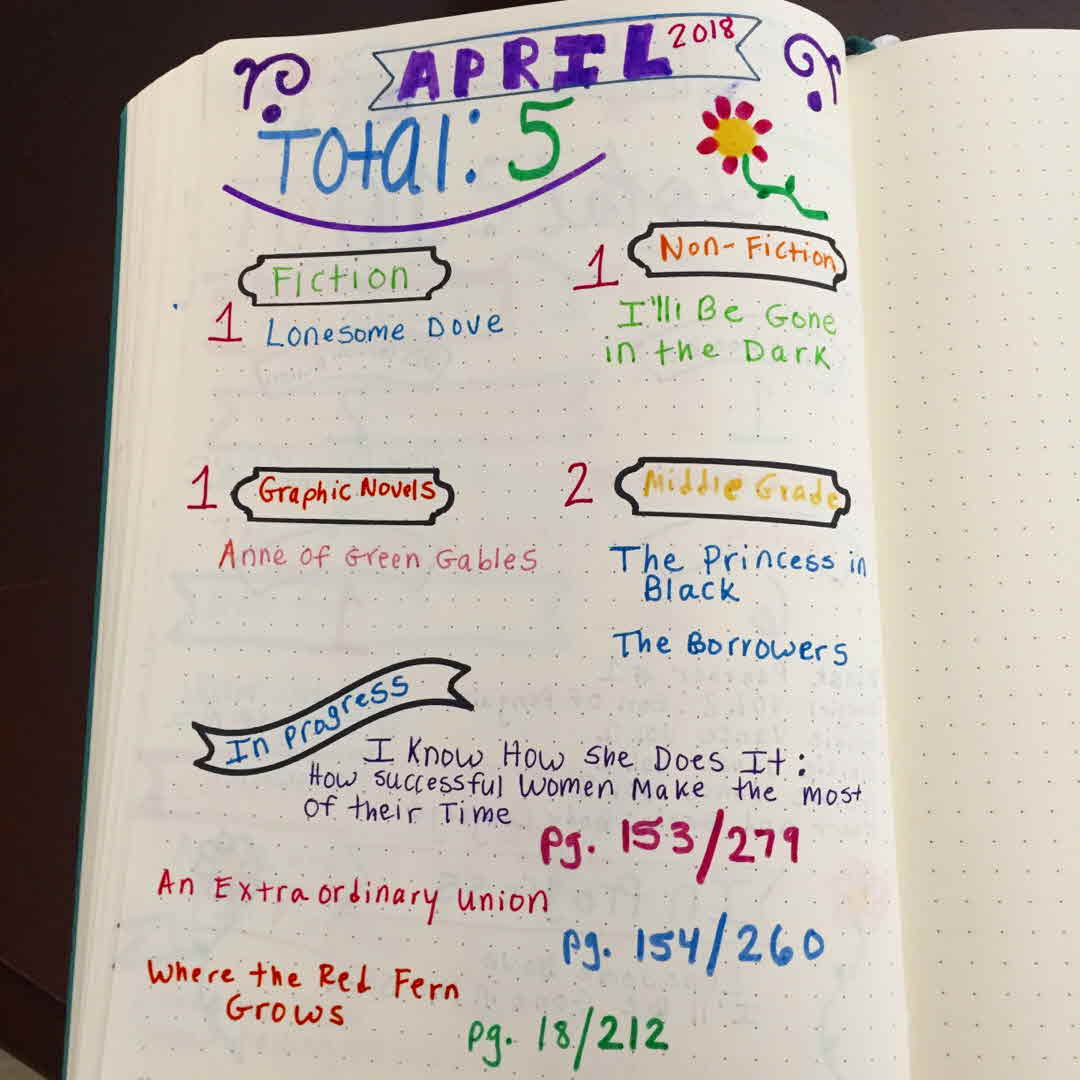 APRIL 2018
Total: 5
Fiction
1 Lonesome Dove
1 Non-Fiction
I'll Be Gone
in the Dark
1 Graphic Novels
Anne of Green Gables
2 Middle Grade
The Princess in
Black
The Borrowers
In Progress
I Know How She Does It:
How successful Women Make the most
of their Time
pg. 153/279
An Extraordinary Union
pg. 154/260
Where the Red Fern
Grows
pg. 18/212